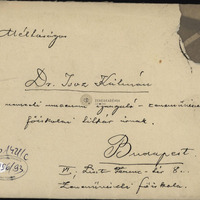 Méltóságos
Dr. Isoz Kálmán
nemzeti muzeumi igazgató - zeneművészeti
főiskolai titkár úrnak.
Budapest
VI., Liszt Ferenc - tér 8.
Zeneművészeti főiskola.